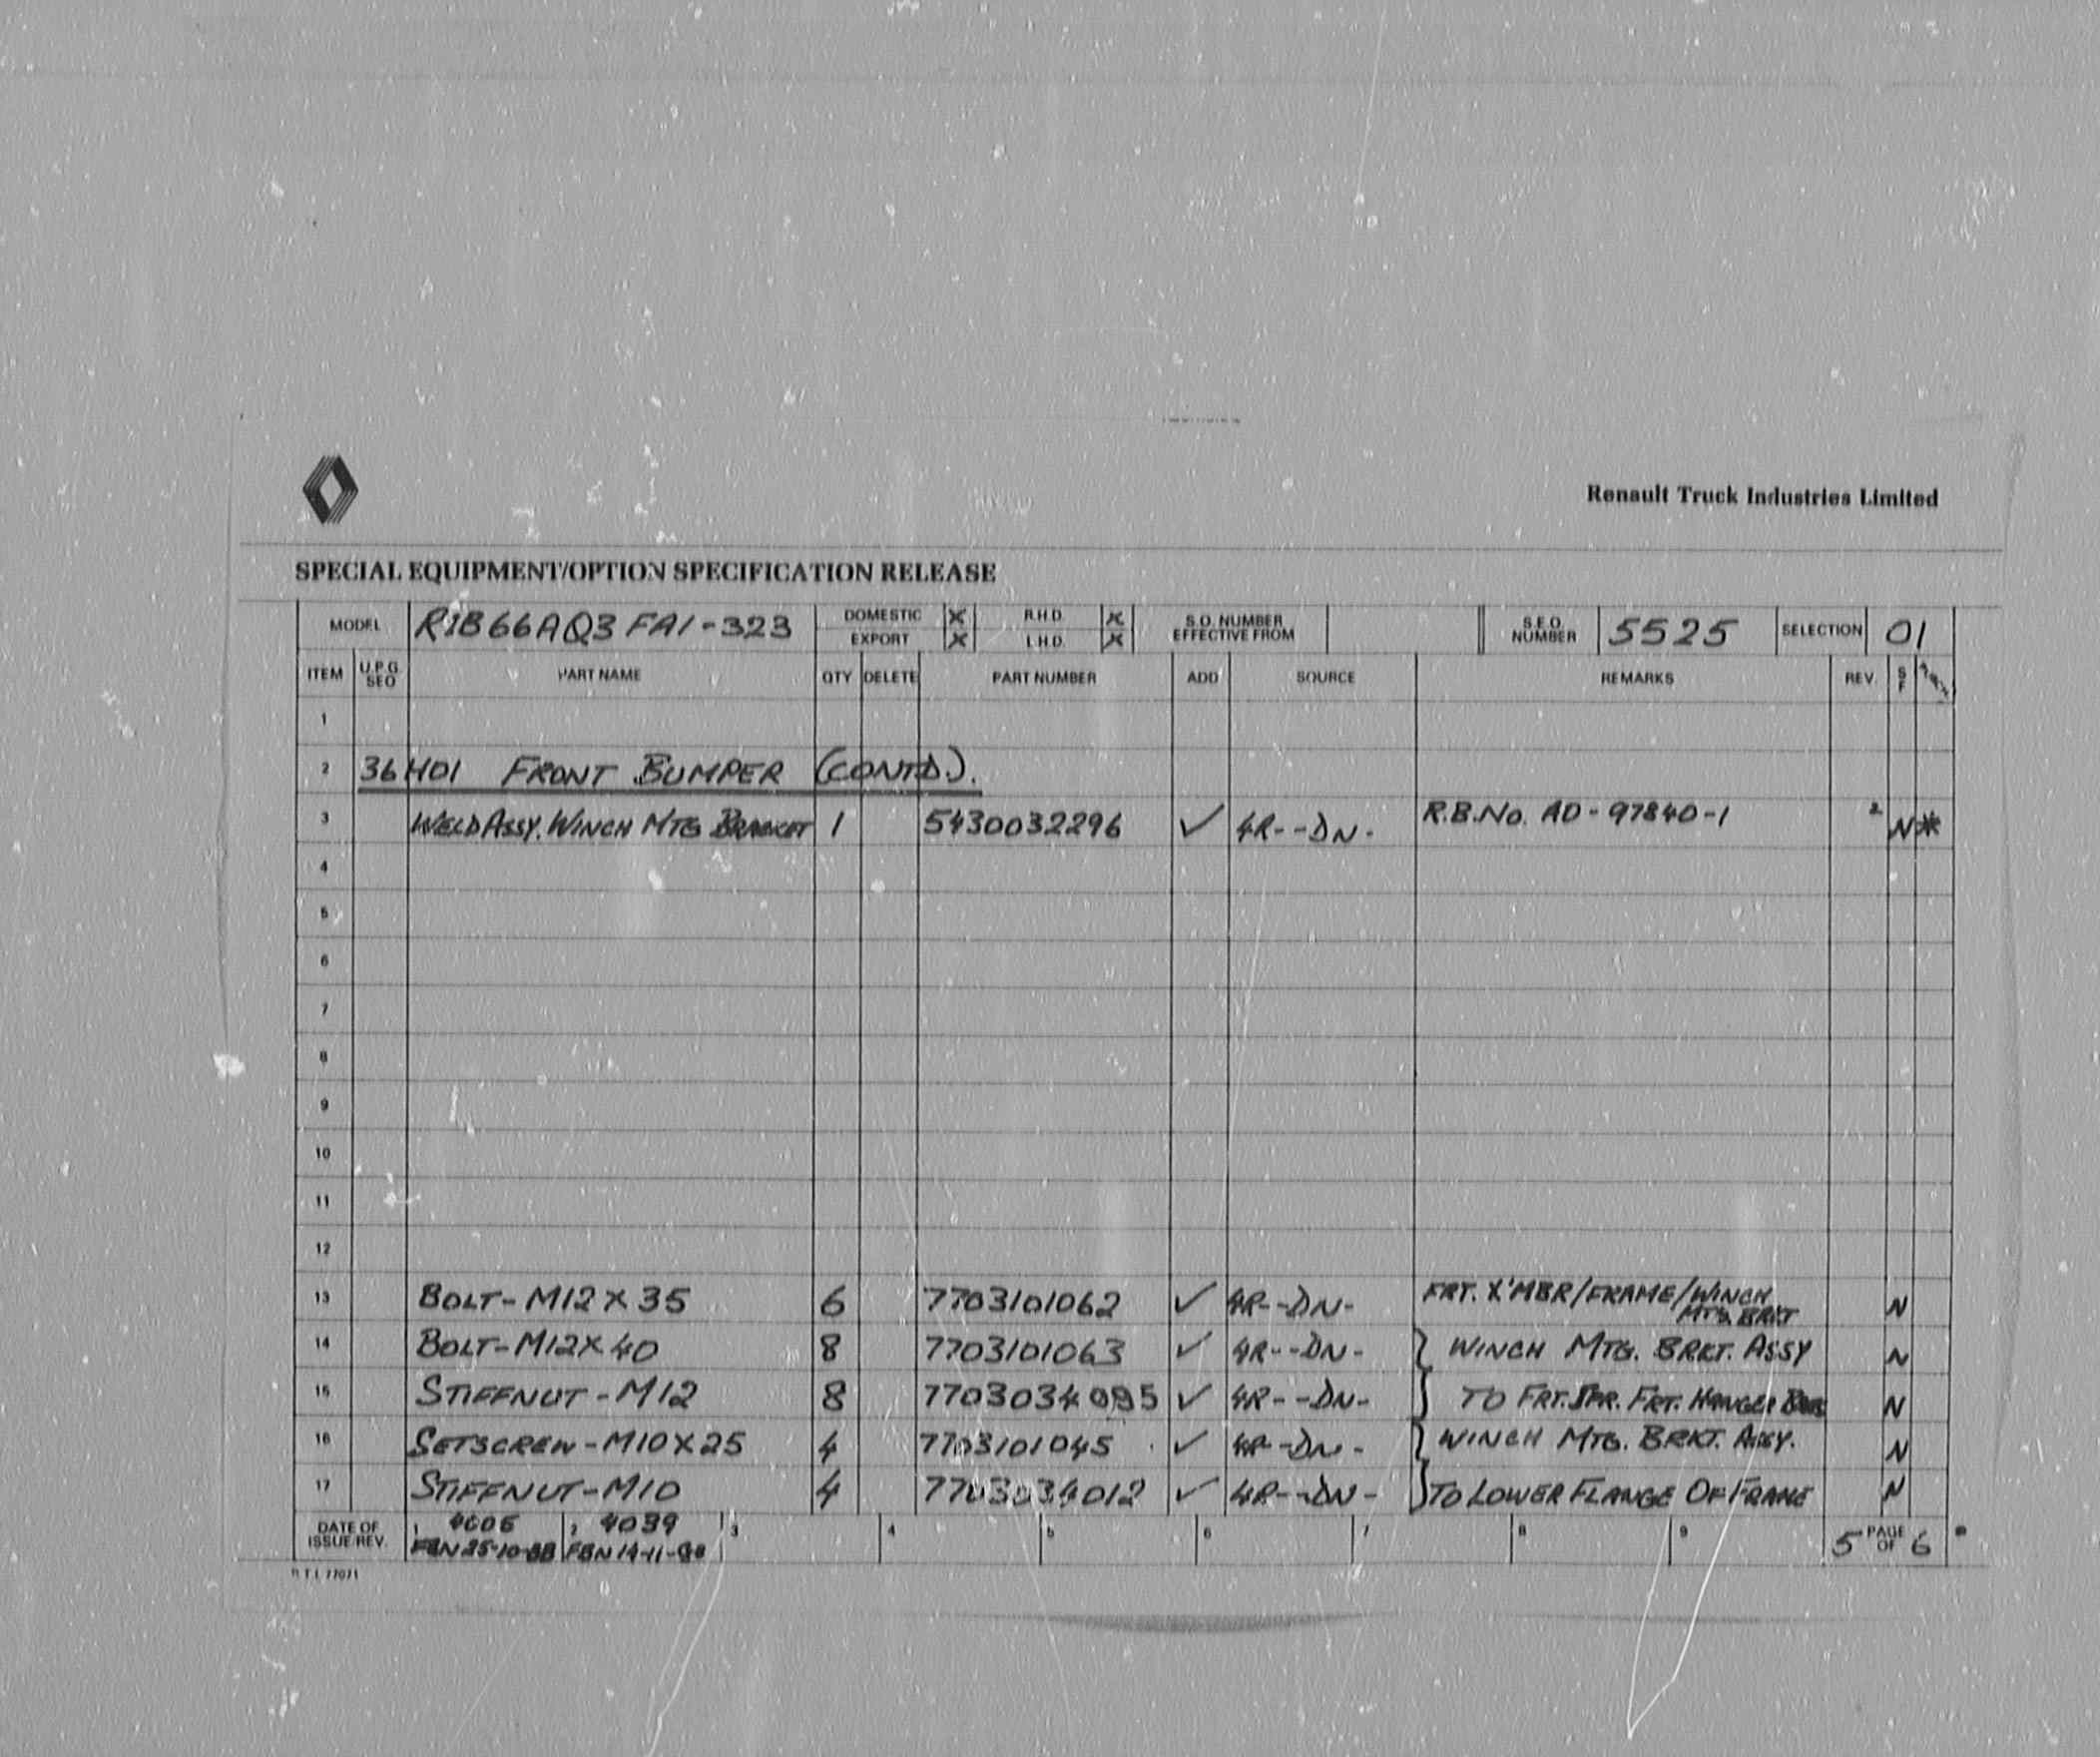 Renault Truck Industries Limited
SPECIAL EQUIPMENT/OPTION SPECIFICATION RELEASE
MODEL R1B66AQ3FA1-323 DOMESTIC X R.H.D. X S.O. NUMBER EFFECTIVE FROM S.E.O. NUMBER 5525 SELECTION 01
EXPORT X L.H.D. X
ITEM U.P.G. SEQ PART NAME QTY DELETE PART NUMBER ADD SOURCE REMARKS REV. S F
1
2 36H01 FRONT BUMPER (CONTD.).
3 WELD ASSY. WINCH MTG BRACKET 1 5430032296 ✓ 4R--DN- R.B.No. AD-97840-1 2 N *
4
5
6
7
8
9
10
11
12
13 BOLT-M12X35 6 7703101062 ✓ 4R--DN- FRT. X'MBR/FRAME/WINCH MTG. BRKT N
14 BOLT-M12X40 8 7703101063 ✓ 4R--DN- } WINCH MTG. BRKT. ASSY N
15 STIFFNUT-M12 8 ✓ 4R--DN- TO FRT. SPR. FRT. HANGER N
16 SETSCREW-M10X25 4 7703101045 ✓ 4R--DN- } WINCH MTG. BRKT. ASSY. N
17 STIFFNUT-M10 4 7703034012 ✓ 4R--DN- TO LOWER FLANGE OF FRAME N
DATE OF ISSUE/REV. 1 4006 2 4039 3 4 5 6 7 8 9 5 PAGE OF 6
FBN 25-10-88 FBN 14-11-88
R.T.I. 77071